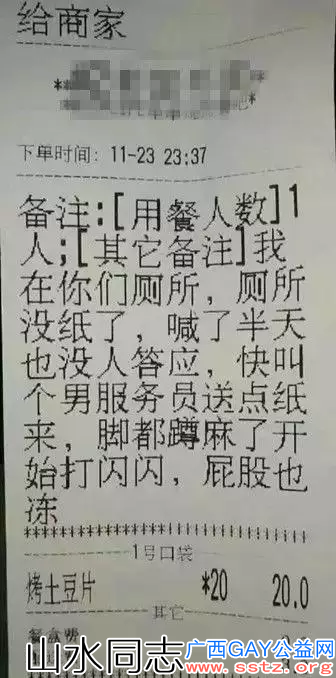 给商家
下单时间: 11-23 23:37
备注:[用餐人数]1
人;[其它备注]我
在你们厕所，厕所
没纸了，喊了半天
也没人答应，快叫
个男服务员送点纸
来，脚都蹲麻了开
始打闪闪，屁股也
冻
1号口袋
烤土豆片 *20 20.0
其它
餐盒费
山水同志
广西GAY公益网
www.sstz.org